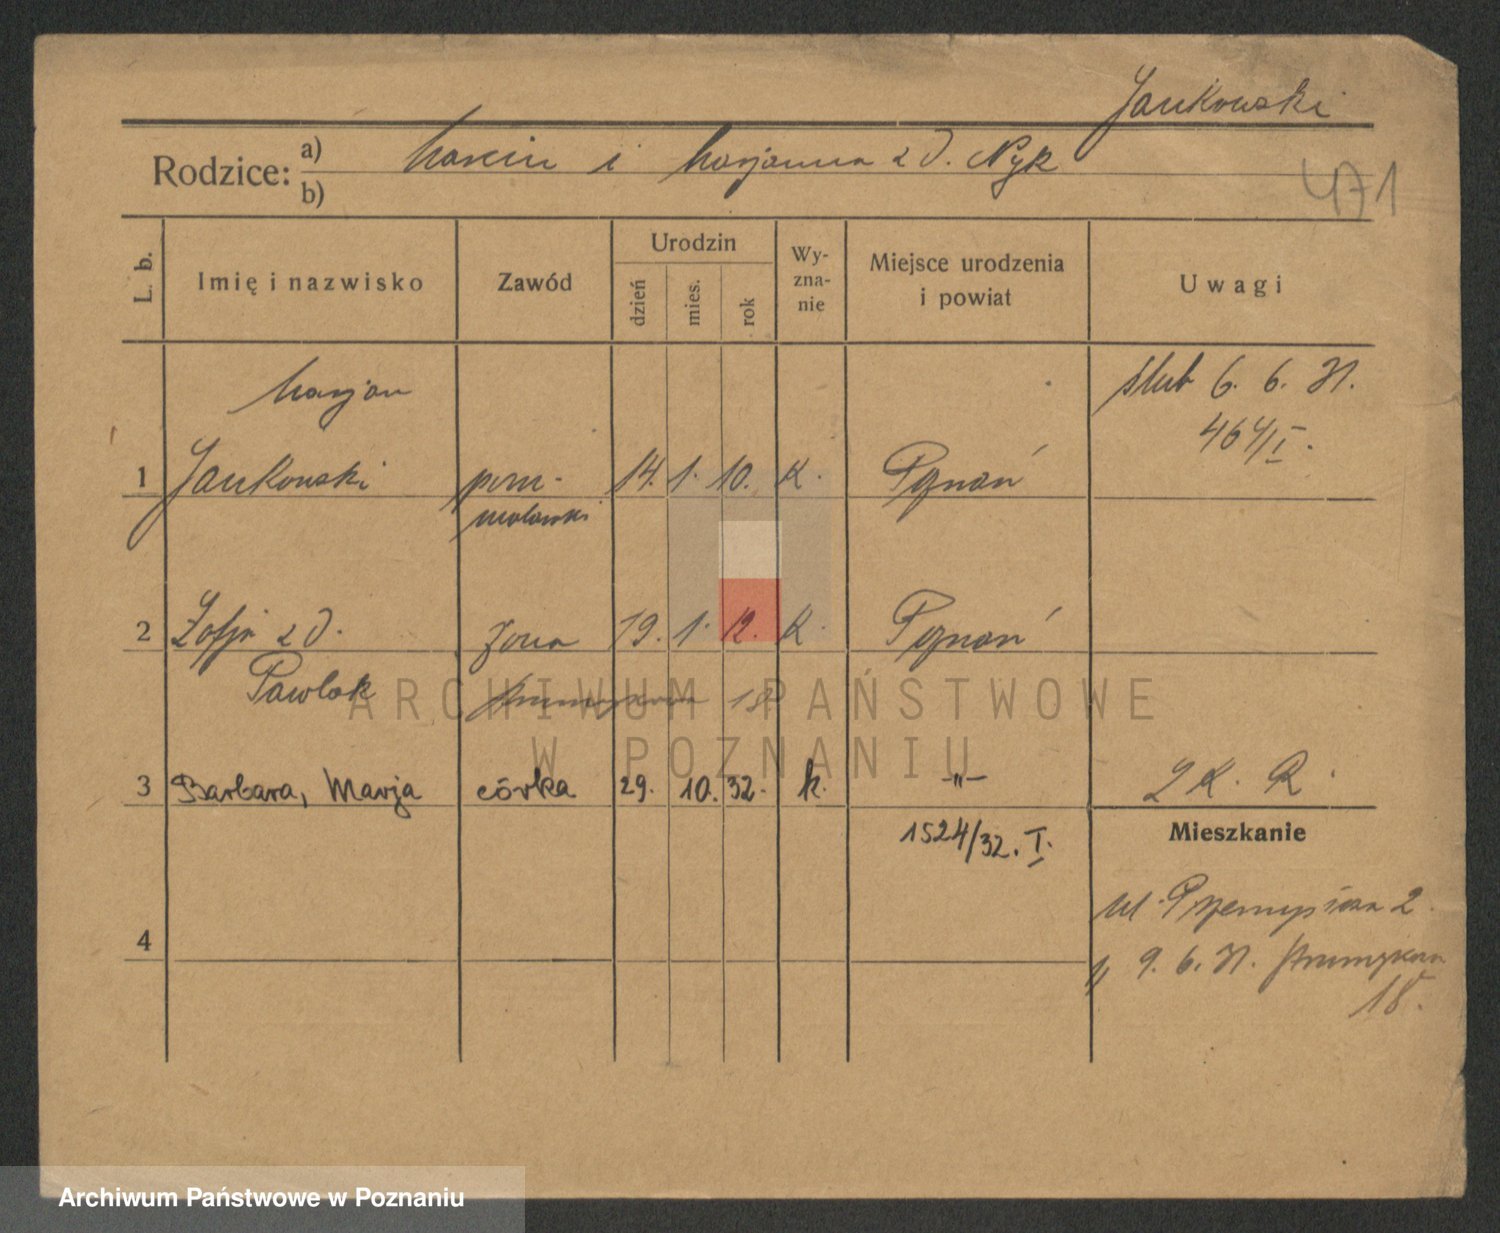 Jankowski
Rodzice: a) Marcin i Marjanna z d. Nyk
b)
471
L. b.
Imię i nazwisko
Zawód
Urodzin
dzień
mies.
rok
Wy-
zna-
nie
Miejsce urodzenia
i powiat
Uwagi
Marjan
ślub 6. 6. 31.
464/I.
1 Jankowski 14. 1. 10. K. Poznań
2 Zofja z d. żona 19. 1. 12. K. Poznań
Pawlak 18
3 Barbara, Marja córka 29. 10. 32. k. -"- 2 K. R.
1524/32. I.
Mieszkanie
ul. 2.
4
9. 6. 31.
18.
ARCHIWUM PAŃSTWOWE
W POZNANIU
Archiwum Państwowe w Poznaniu